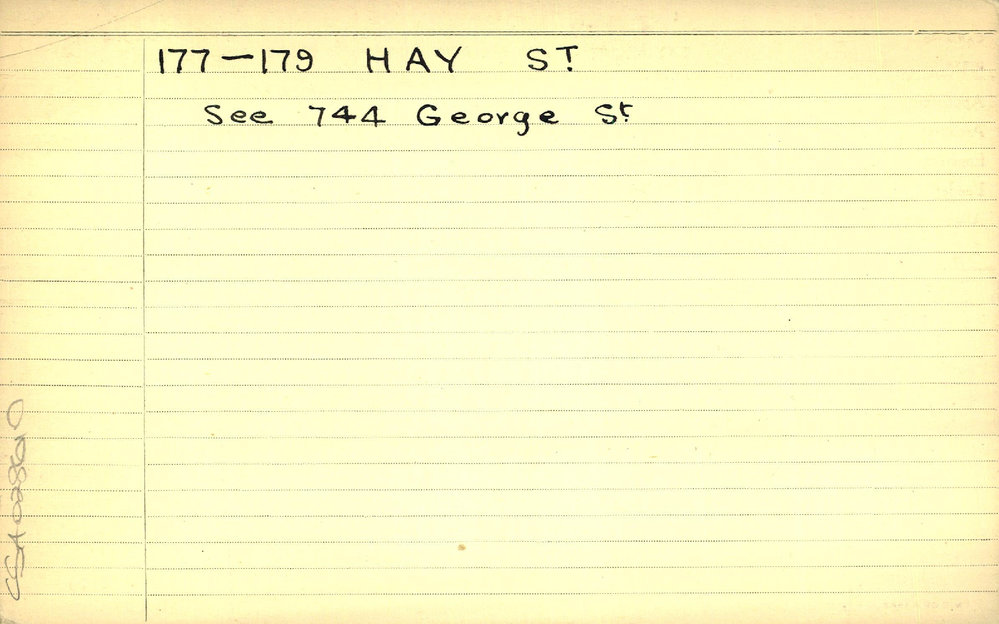 177-179 HAY ST
See 744 George St
CSA028610